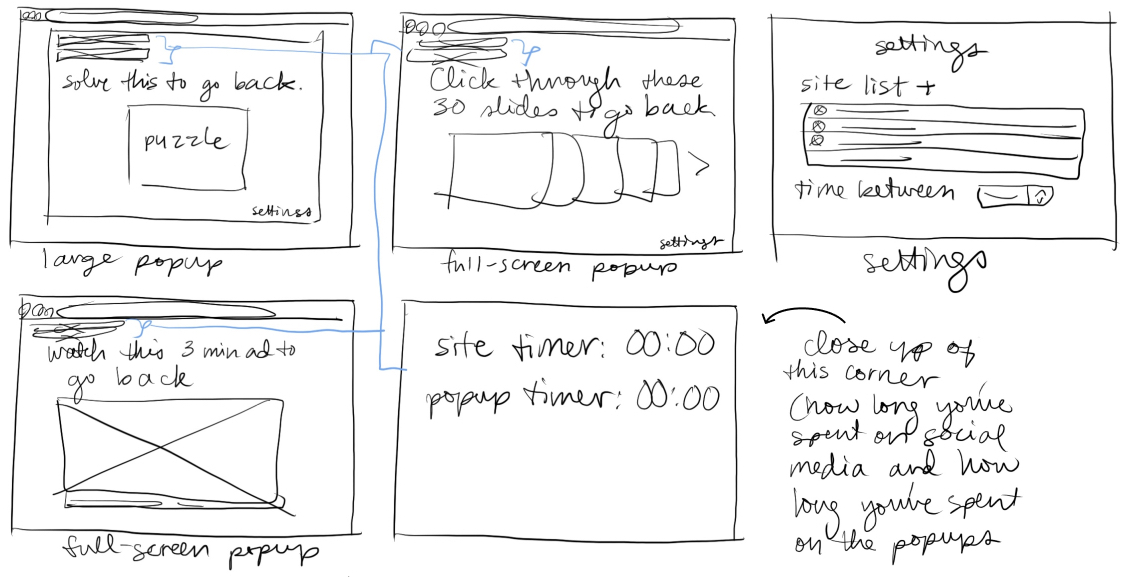 solve this to go back.
puzzle
settings
large popup
Click through these
30 slides to go back
>
settings
full-screen popup
settings
site list +
time between
settings
watch this 3 min ad to
go back
full-screen popup
site timer: 00:00
popup timer: 00:00
close up of
this corner
(how long you've
spent on social
media and how
long you've spent
on the popups